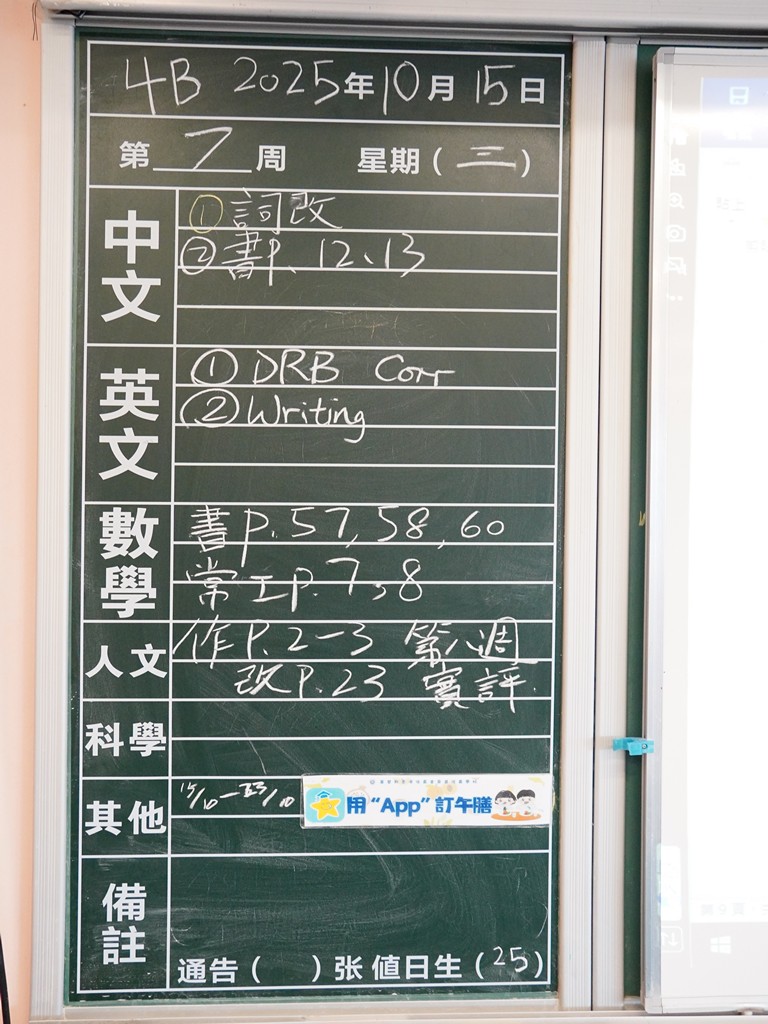 4B 2025年10月15日
第 7 周 星期(三)
中文
① 詞改
② 書P. 12、13
英文
① DRB Corr
② Writing
數學
書 p.57, 58, 60
常工p.7,8
人文
作P.2-3 第八週
改P.23 實評
科學
其他
15/10 — 23/10
用“App”訂午膳
備註
通告( )张 值日生(25)